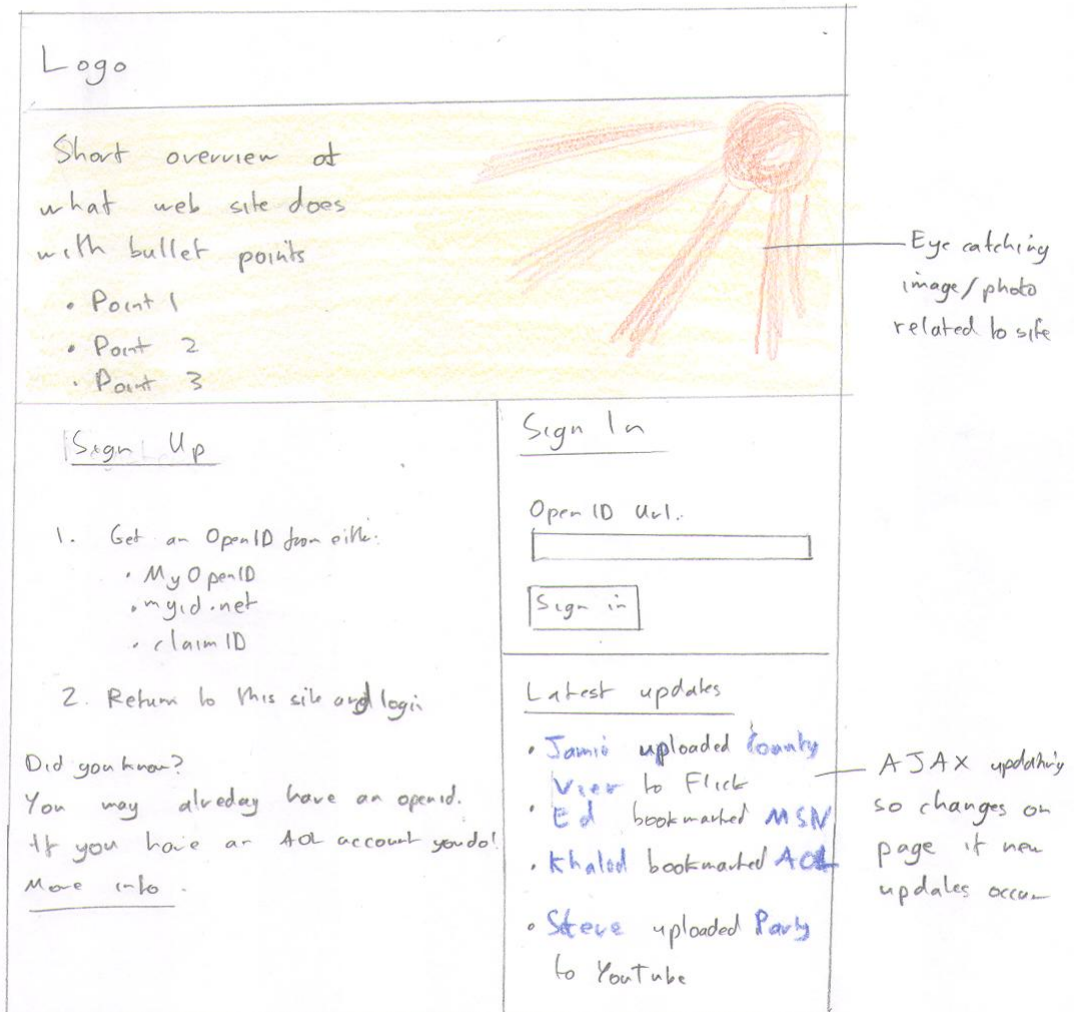 Logo
Short overview of
what web site does
with bullet points
• Point 1
• Point 2
• Point 3
Eye catching
image/photo
related to site
Sign Up
1. Get an OpenID from either:
• MyOpenID
• myid.net
• claimID
2. Return to this site and login
Did you know?
You may alreday have an openid.
If you have an AOL account you do!
More info.
Sign In
OpenID Url:
Sign in
Latest updates
• Jamie uploaded County
View to Flick
• Ed bookmarked MSN
• Khalod bookmarked AOL
• Steve uploaded Party
to YouTube
AJAX updating
so changes on
page if new
updates occur